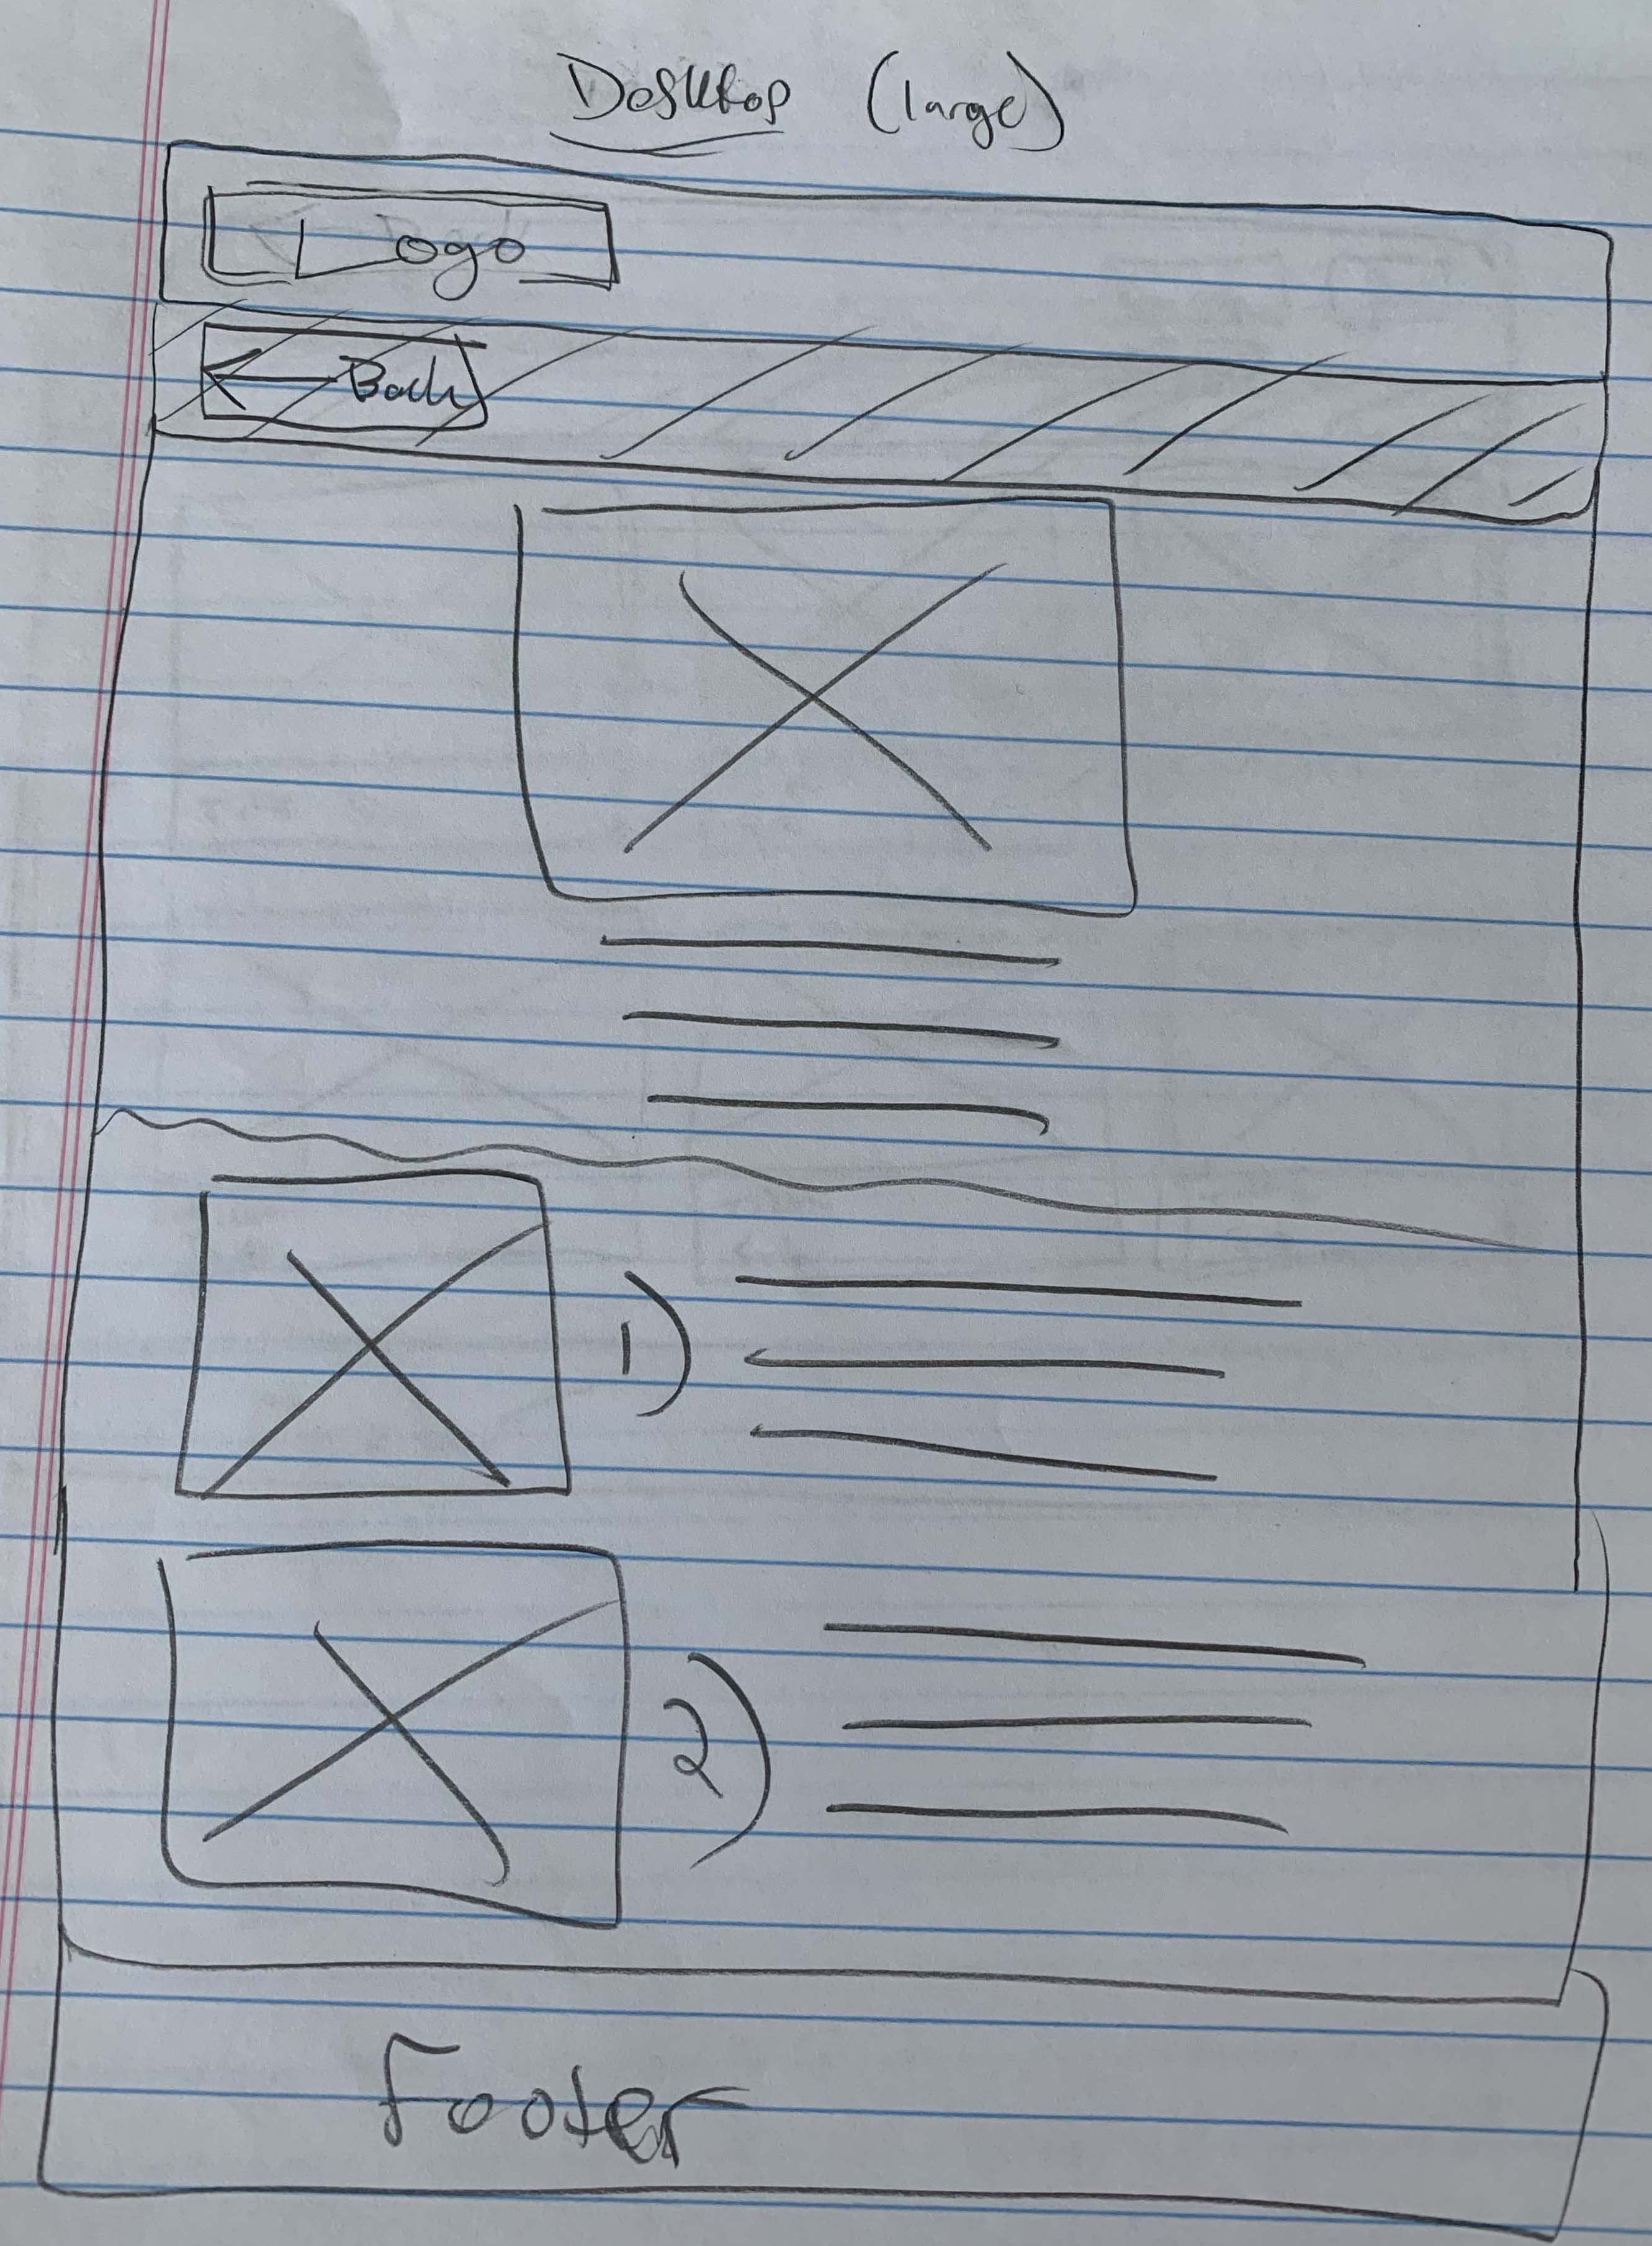 Desktop (large)
Logo
← Back
1)
2)
Footer